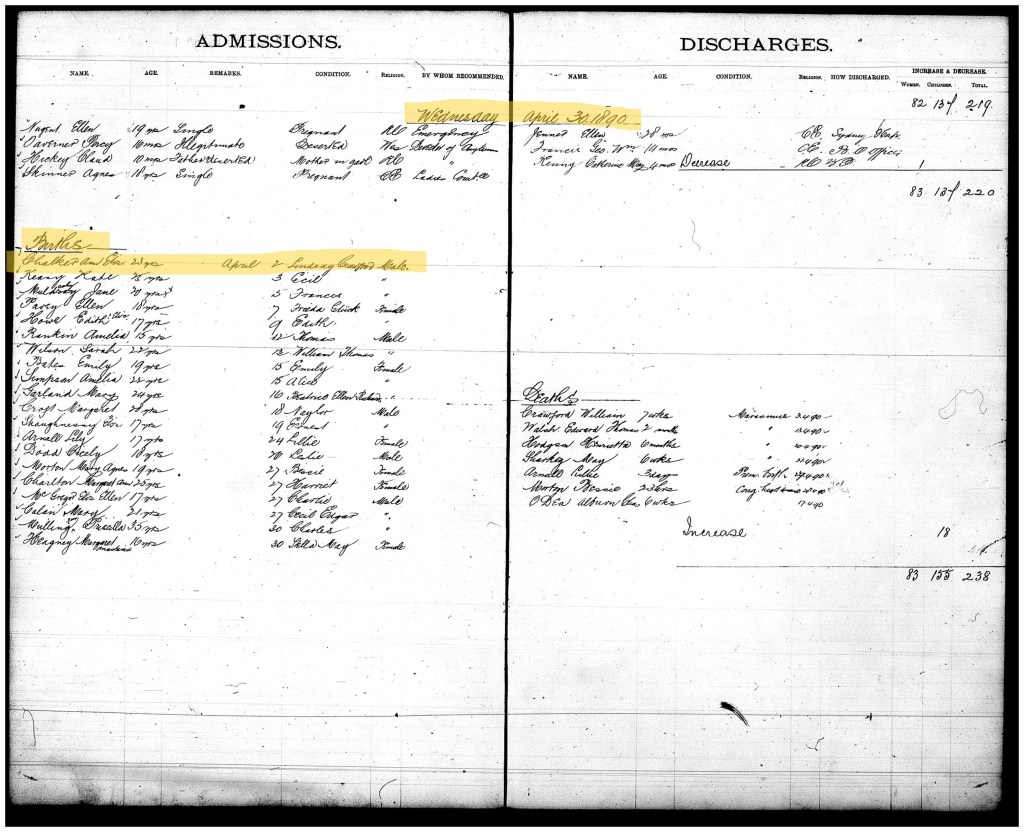 ADMISSIONS.
NAME. AGE. REMARKS. CONDITION. RELIGION. BY WHOM RECOMMENDED.
Wednesday
Nugent Ellen 19 yrs Single Pregnant RC Emergency
Taverner Percy 16 mos Illegitimate Deserted Wes Director of Asylums
Hickey Claud 10 mos Father Deserted Mother in gaol RC "
Skinner Agnes 18 yrs Single Pregnant CE Ladies Comtee
Births
Chalker Ann Eliz 23 yrs April 2 Lindsay Crawford Male.
Keary Kate 3 Cecil "
Jane 20 yrs 5 Francis "
Pavey Ellen 18 yrs 7 Frieda Female
Howe Edith Eliz 17 yrs 9 Edith "
Rankin Amelia 15 yrs 12 Thomas Male
Wilson Sarah 22 yrs 13 William Thomas "
Bates Emily 19 yrs 15 Emily Female
Simpson Amelia 15 Alice "
Garland Mary 24 yrs 16 Beatrice Ellen "
Croft Margaret 20 yrs 18 Naylor Male
Shaughnessy Eliz 17 yrs 19 Ernest "
Arnall Lily 17 yrs 24 Lillie Female
Dodd Cicely 18 yrs 20 Leslie Male
Morton Mary Agnes 19 yrs 27 Bessie Female
Charlton Margaret Ann 25 yrs 27 Harriet Female
McGregor Eliz Ellen 17 yrs 27 Charlie Male
Mary 21 yrs 27 Cecil Edgar "
Mullins Priscilla 35 yrs 30 Charles "
Heagney Margaret 16 yrs 30 Stella May Female
DISCHARGES.
NAME. AGE. CONDITION. RELIGION. HOW DISCHARGED. INCREASE & DECREASE.
WOMEN. CHILDREN. TOTAL.
82 137 219
April 30. 1890
Jenner Ellen 28 yrs CE Sydney
Francis Geo. Wm 14 mos CE B.O Officer
Catherine May 4 mos Decrease RC 1
83 137 220
Deaths
Crawford William 7 wks Marasmus 3.4.90
Walsh Edward Thomas 2 mnths "
Hodgson Henrietta 6 months "
Sharkey May 6 wks "
Arnall Lillie 3 days
Morton Bessie 23 hrs
O'Dea 6 wks
Increase 18
83 155 238